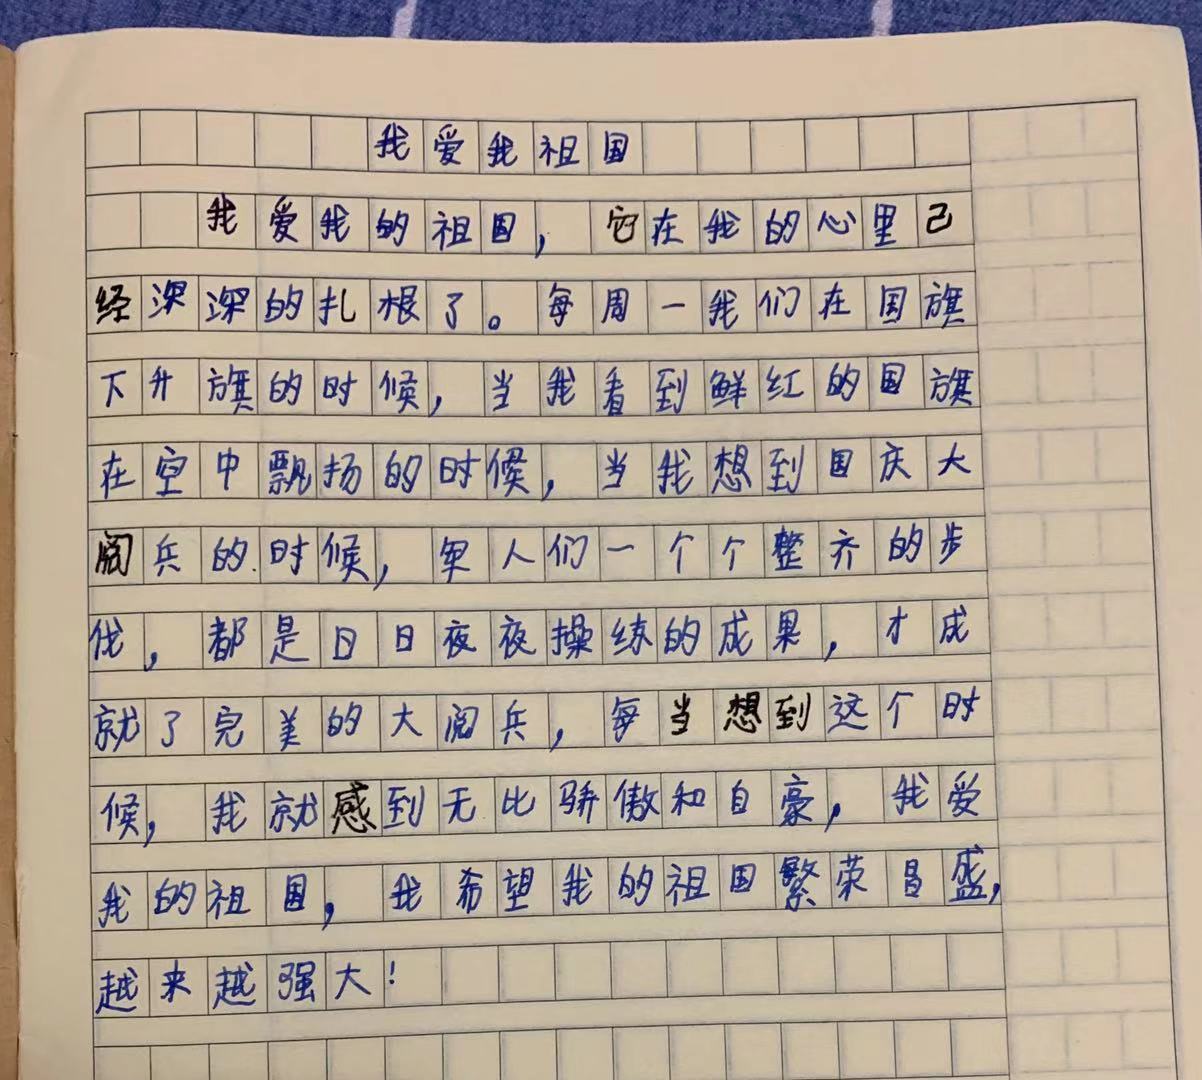 我爱我祖国
我爱我的祖国，它在我的心里已
经深深的扎根了。每周一我们在国旗
下升旗的时候，当我看到鲜红的国旗
在空中飘扬的时候，当我想到国庆大
阅兵的时候，军人们一个个整齐的步
伐，都是日日夜夜操练的成果，才成
就了完美的大阅兵，每当想到这个时
候，我就感到无比骄傲和自豪，我爱
我的祖国，我希望我的祖国繁荣昌盛，
越来越强大！